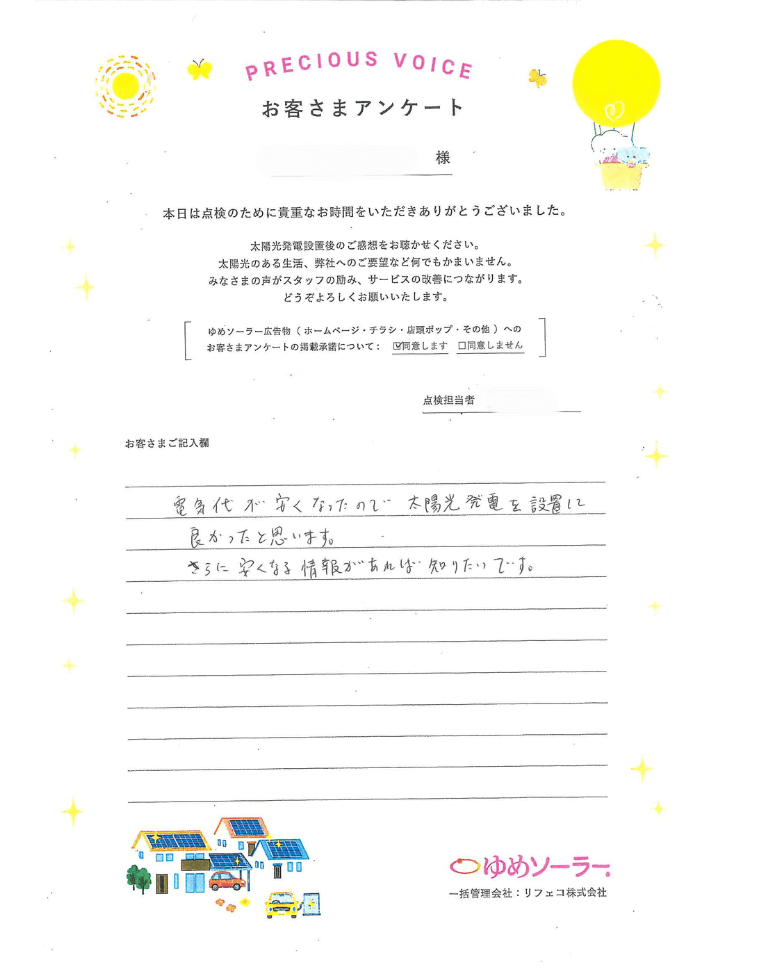 PRECIOUS VOICE
お客さまアンケート
様
本日は点検のために貴重なお時間をいただきありがとうございました。
太陽光発電設置後のご感想をお聴かせください。
太陽光のある生活、弊社へのご要望など何でもかまいません。
みなさまの声がスタッフの励み、サービスの改善につながります。
どうぞよろしくお願いいたします。
ゆめソーラー広告物（ホームページ・チラシ・店頭ポップ・その他）への
お客さまアンケートの掲載承諾について： ☑同意します □同意しません
点検担当者
お客さまご記入欄
電気代が安くなったので太陽光発電を設置して
良かったと思います。
さらに安くなる情報があれば知りたいです。
ゆめソーラー®
一括管理会社：リフェコ株式会社